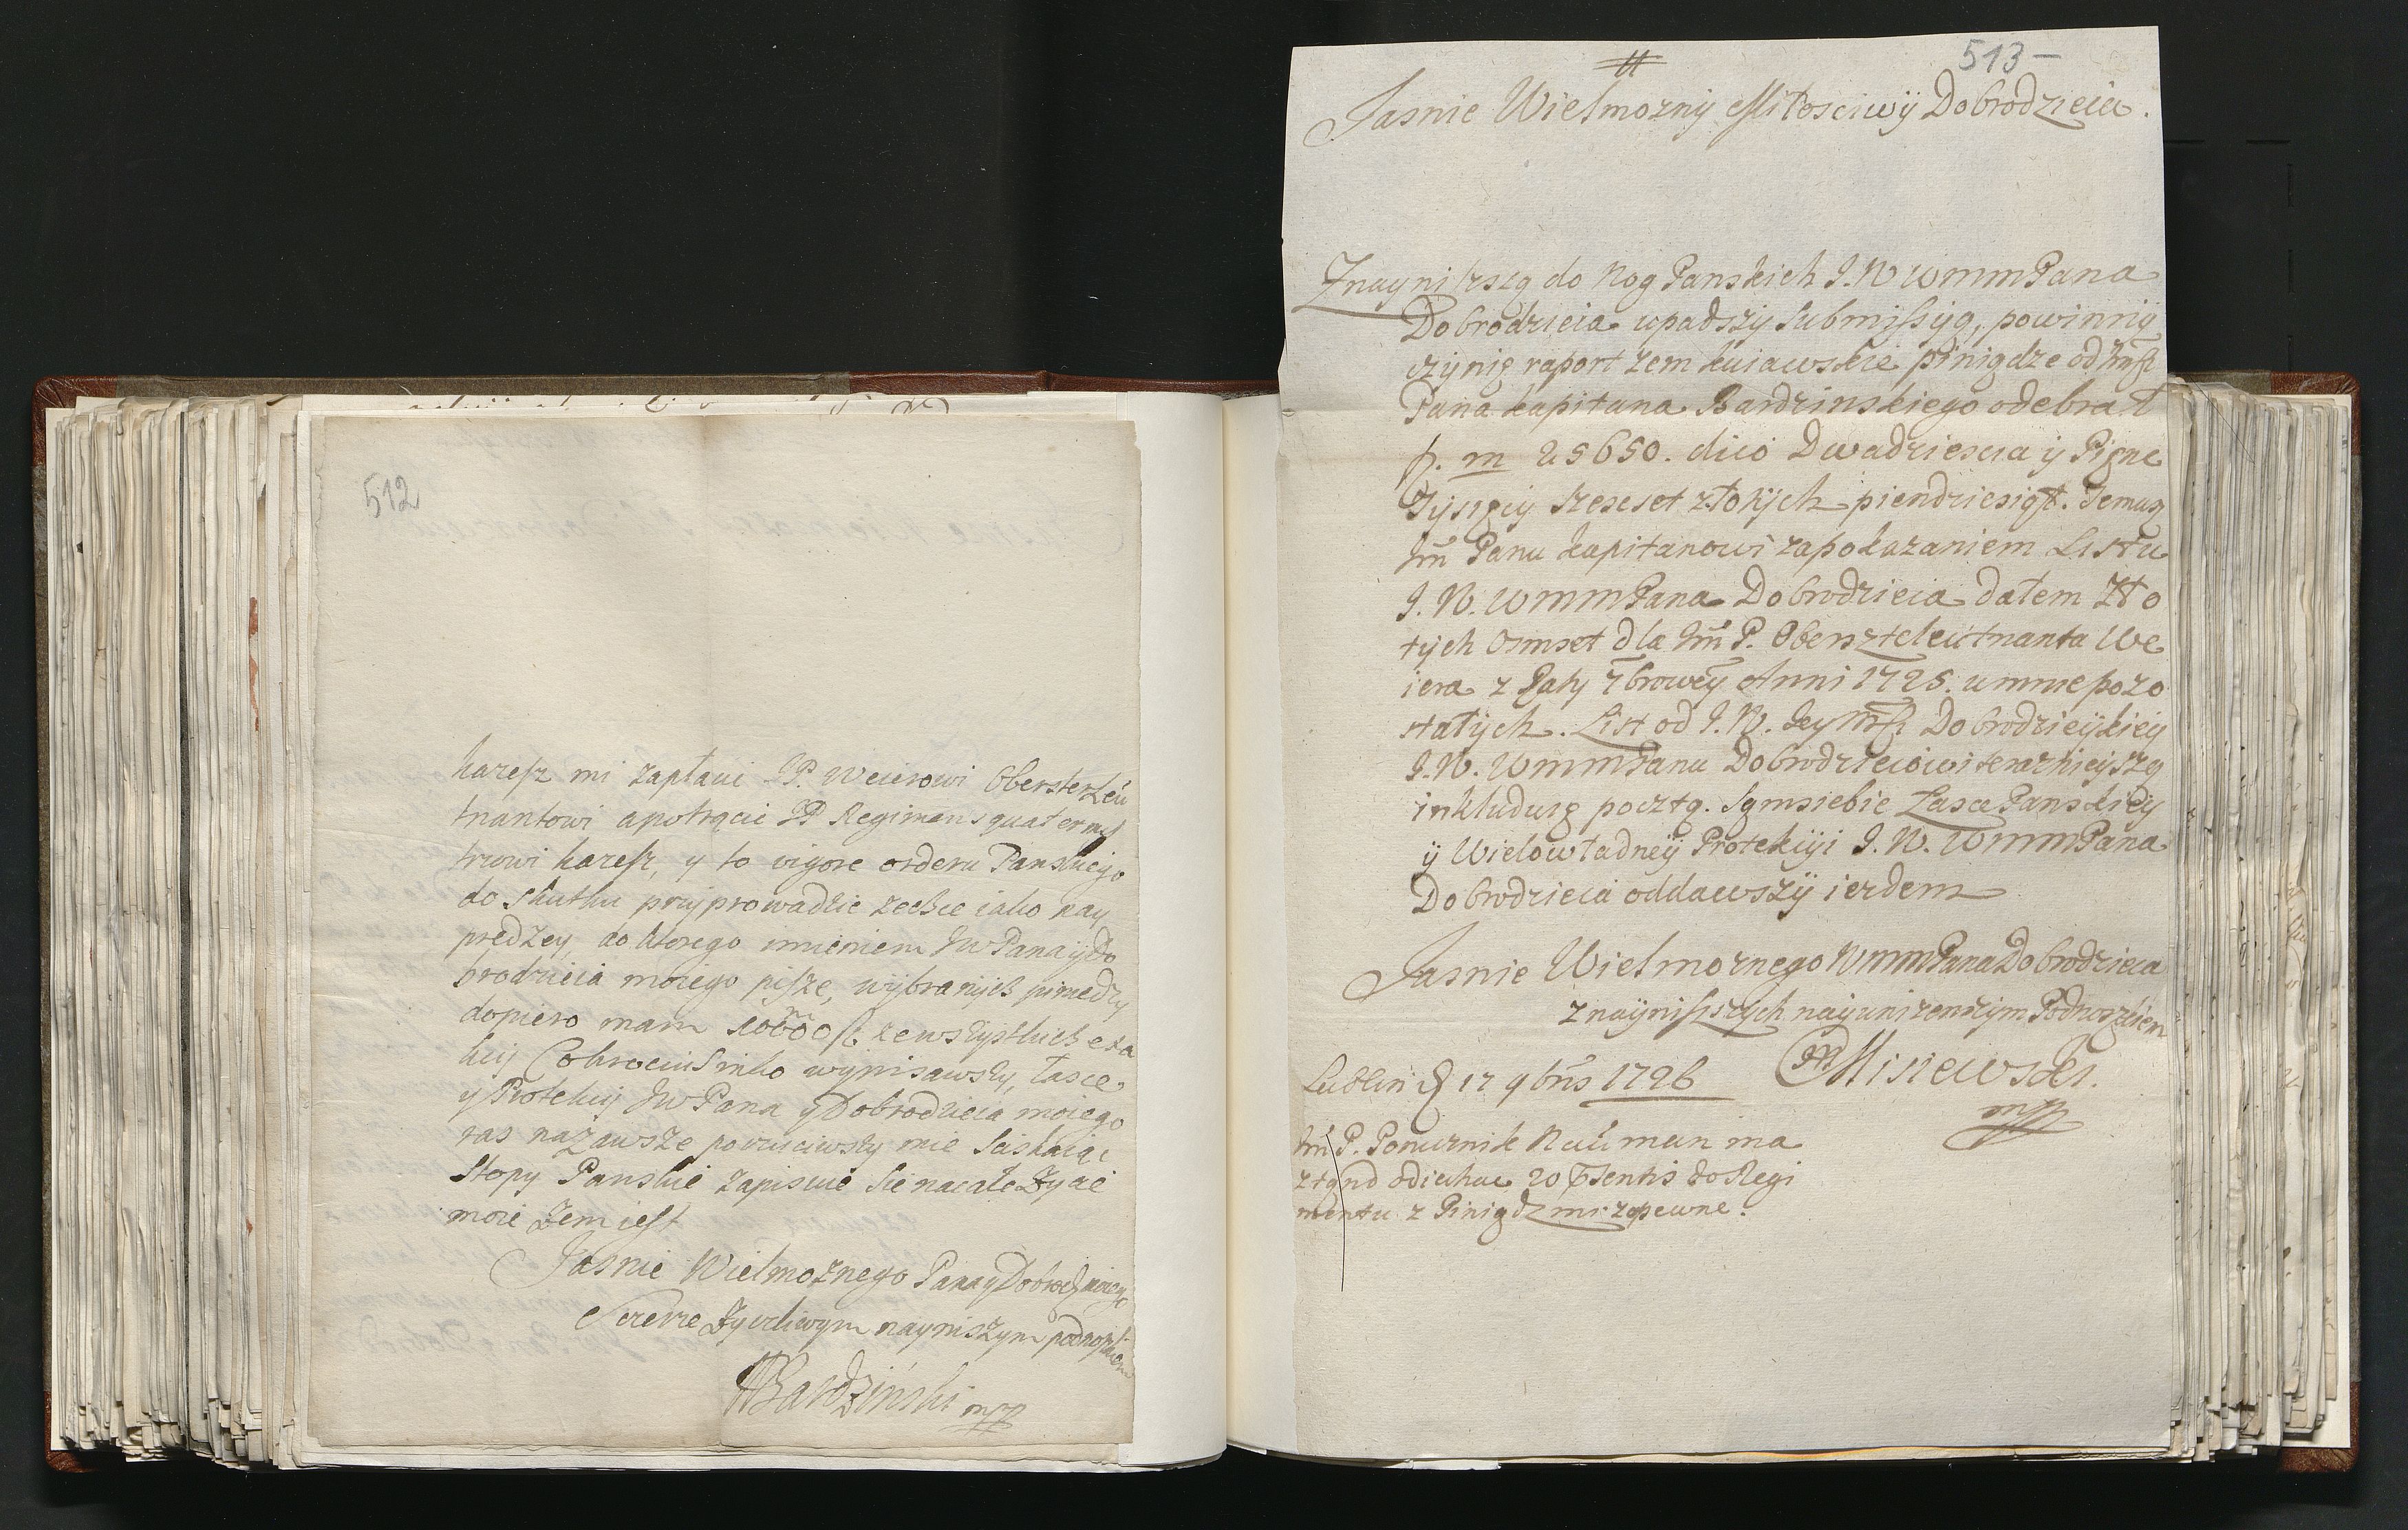 512
karesz mi zapłacic JP. Weierowi Obersterleu
tnantowi apotrącic JP Regimens quatermi
trzowi karesz, y to vigore orderu Panskiego
do skutku przyprowadzic zechce iako nay
prędzey, do ktorego imieniem JW Pana y Do
brodzieia moiego pisze, wybranych pieniędzy
dopiero mam 10600 ze wszystkich exa
kcij wypisawszy, łasce
y Protekcij JW Pana y Dobrodzieia moiego
ras nazawsze poruciwszy mie sciskaiąc
stopy Panskie zapisuie sie nacałe Zycie
moie Zem iest
Jasnie Wielmożnego Pana y Dobrodz moiego
Szczerze Zyczliwym nayniszym podnoszkiem
Bardzinski mpp
513
Jasnie Wielmozny Miłosciwÿ Dobrodzieia.
Znayniszszą do Nog Panskich J. W WMMPana
Dobrodzieia upadszÿ Submissÿą, powinnÿ
czÿnię raport zem kuiawskie pinigdze od Jmsci
Pana kapitana Bardzinskiego odebrał
f. m 25650. dico Dwadziescia ÿ Pięnc
Tÿsięcÿ Szescset złotÿch piendziesiąt. Temusz
Jm Panu kapitanowi zapokazaniem Listu
J. W. WMMPana Dobrodzieia dałem Zło
tÿch Osmset dla Jm P. Oberszteleutnanta We
iera z Raty 7broweÿ Anni 1725. u mnie pozo
stałÿch. List od J. W. Jey Msci Dobrodzieÿkieÿ
J. W. WMMPanu Dobrodzieiowi terazni​eÿszą
inkluduię pocztą. Sąmsiebie Łasce Panskieÿ
ÿ Wielowładneÿ Protekcÿi J. W. WMMPana
Dobrodzieia oddawszÿ iezdem
Jasnie Wielmoznego WMMPana Dobrodzieia
znaÿniszszÿch naÿunizenszÿm Podnoszkiem
Lublin d 17 9bris 1726 Misiewski.
mpp
Jm P. Porucznik Nauman ma
ztąnd odiechac 20 psentis do Regi
mentu z Pinigdzmi zapewne.